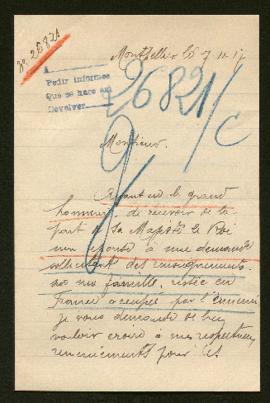 Nº 26821
Montpellier le 7. 11. 17
A
Pedir informes
Que se hace así
Devolver
26821/C
9
Monsieur.
Ayant eu le grand
honneur de recevoir de la
part de Sa Majesté le Roi
une réponse à une demande
sollicitant des renseignements
sur ma famille, restée en
France occupée par l'ennemi
je vous demande de bien
vouloir croire à mes respectueux
remerciements pour l'